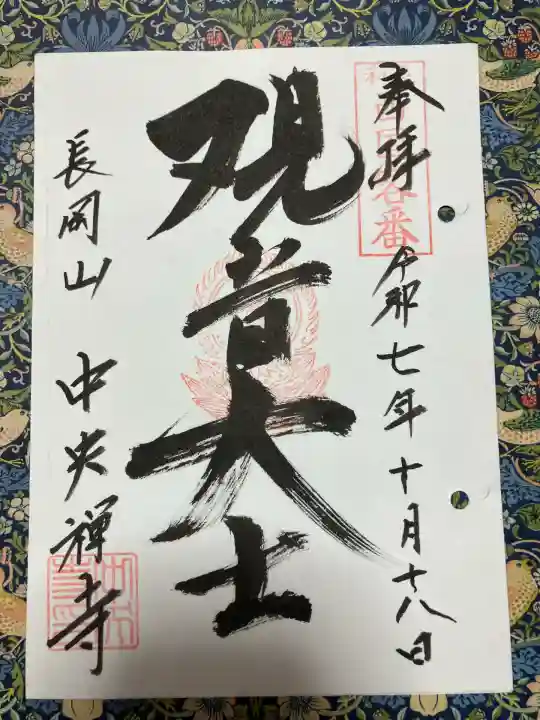 奉拝
令和七年十月十八日
观音大士
長岡山 中央禅寺